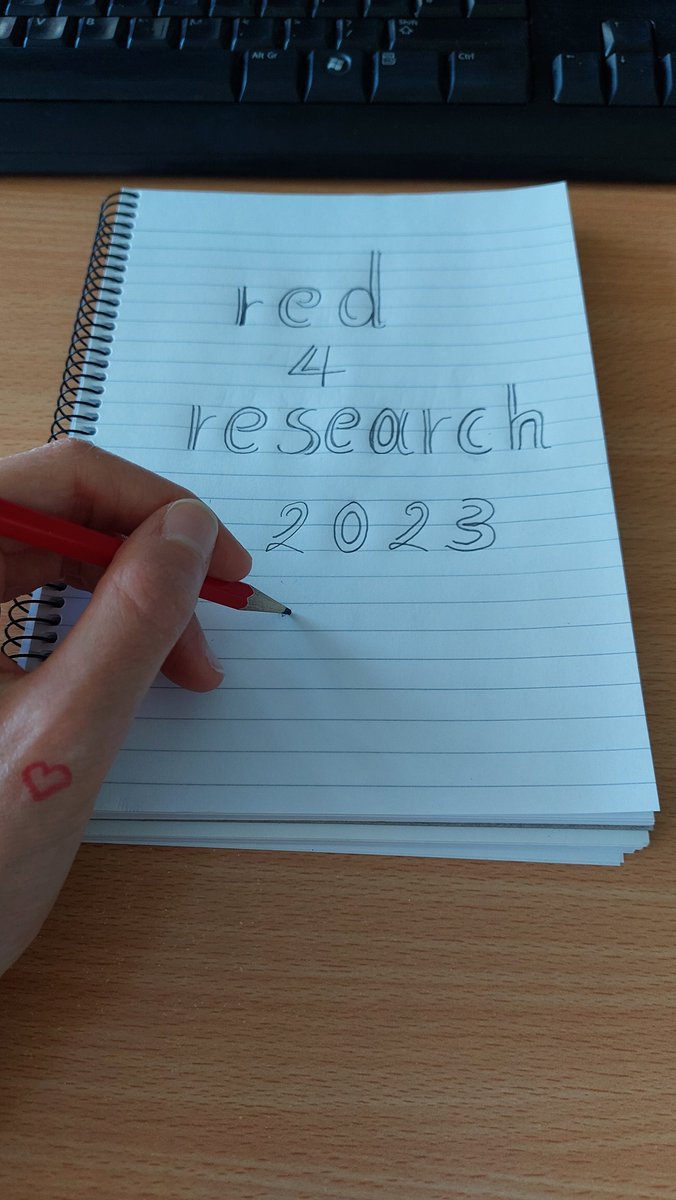 V B
Shift
Alt Gr
Ctrl
red
4
research
2023